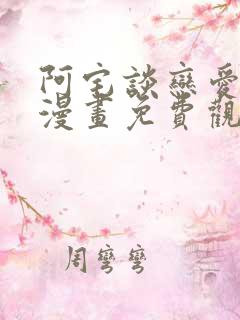 阿宅談戀愛
漫畫免費觀
周彎彎